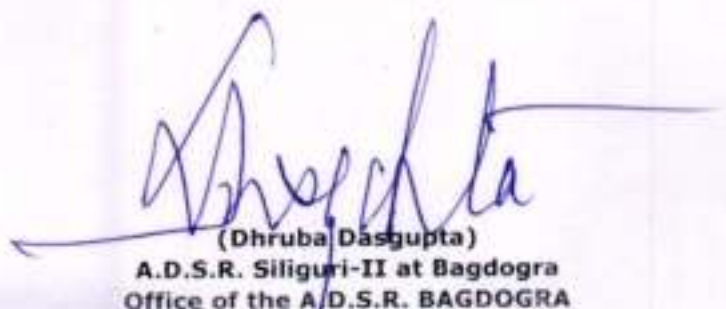 (Dhruba Dasgupta)
A.D.S.R. Siliguri-II at Bagdogra
Office of the A.D.S.R. BAGDOGRA